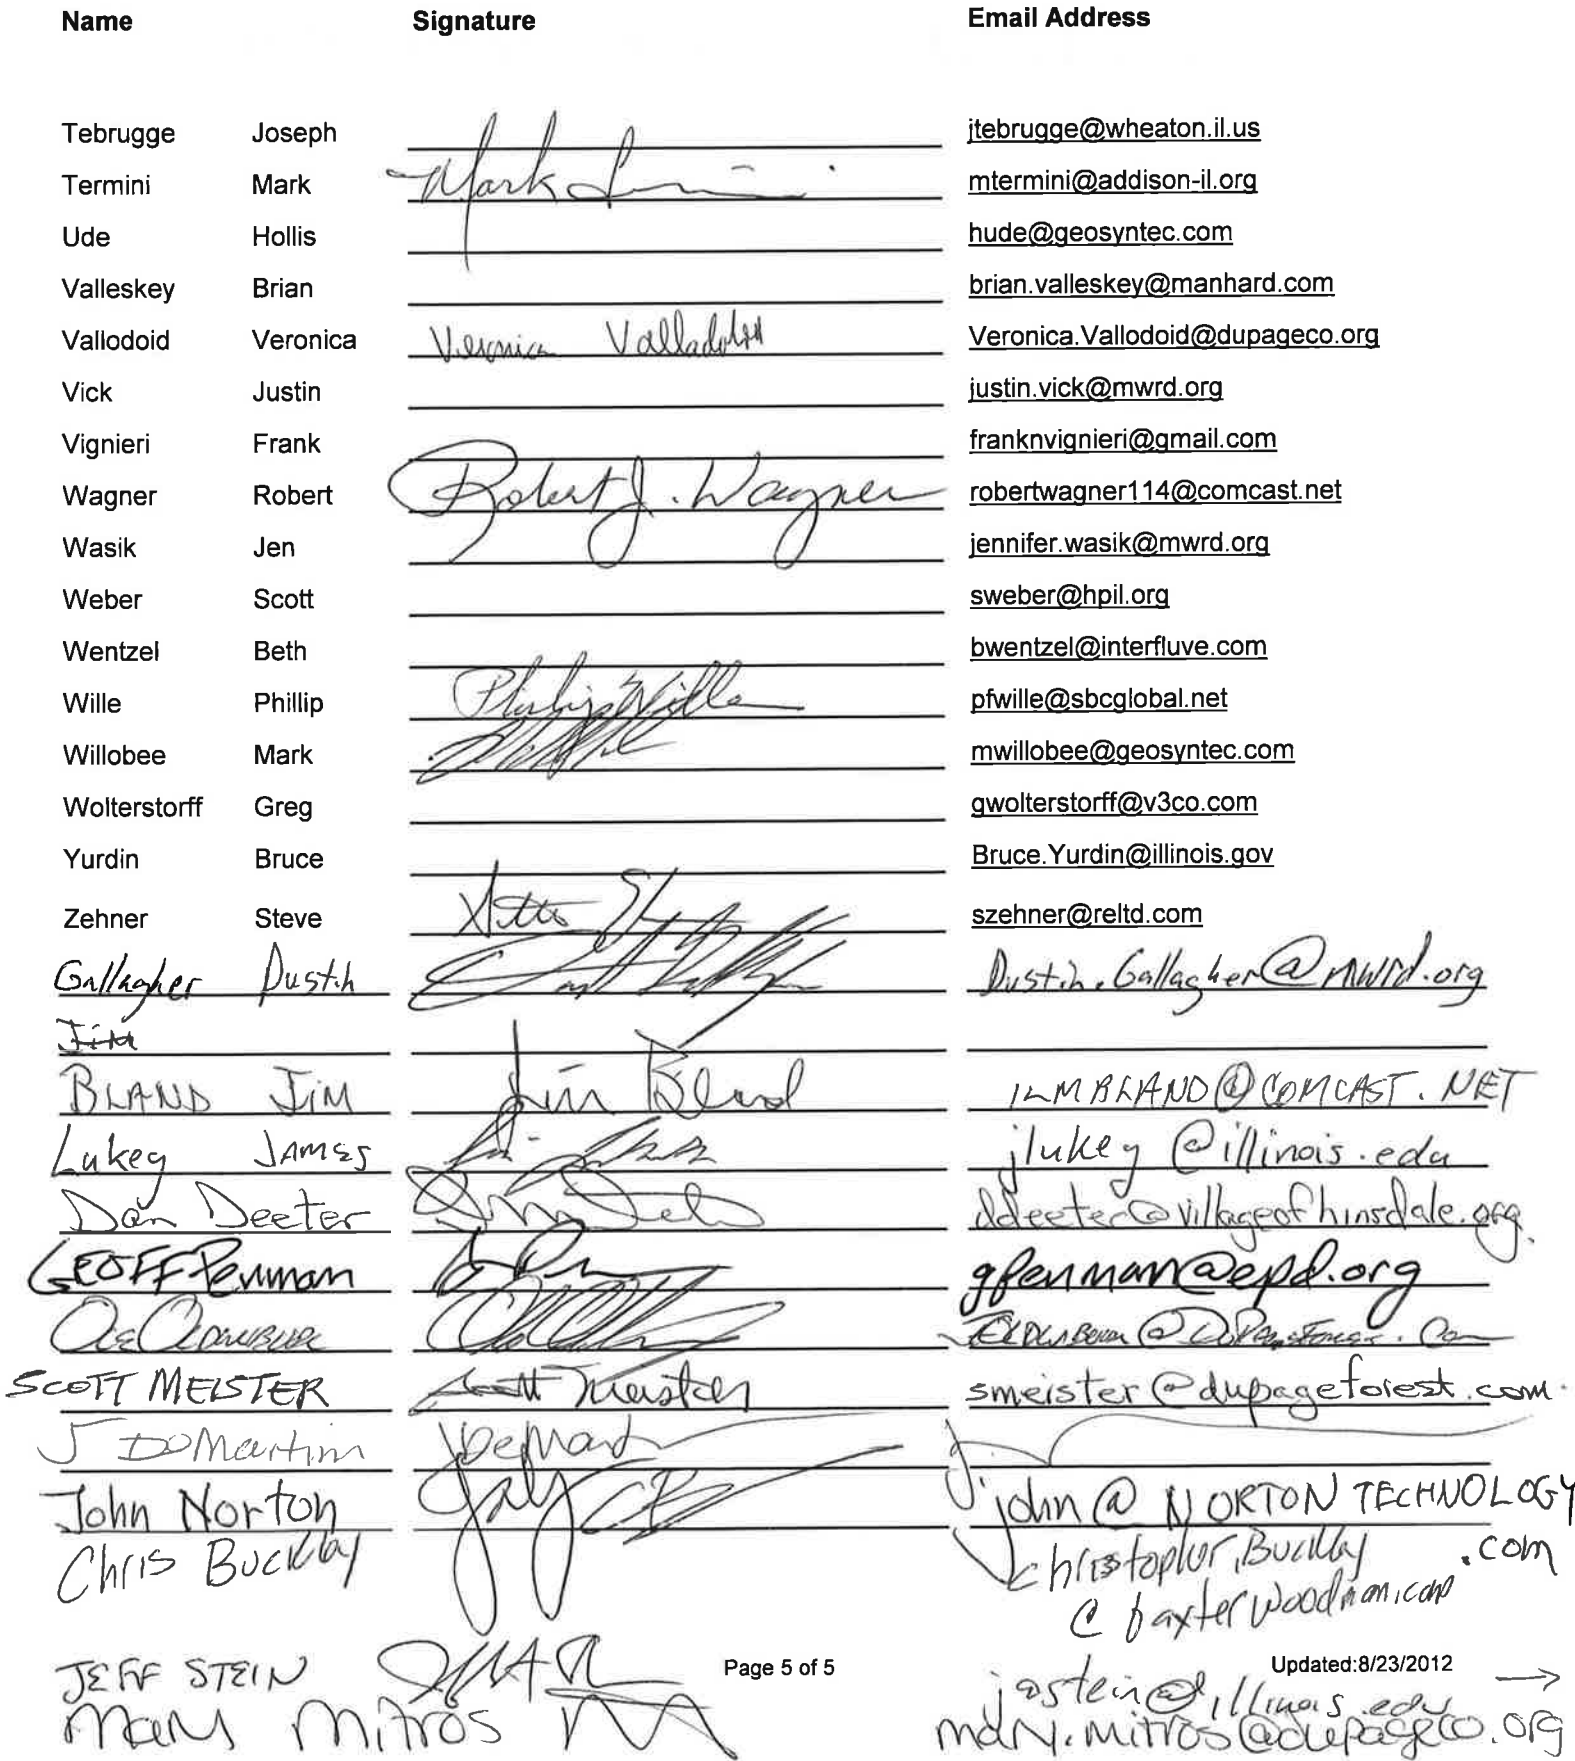 Name Signature Email Address
Tebrugge Joseph jtebrugge@wheaton.il.us
Termini Mark Mark mtermini@addison-il.org
Ude Hollis hude@geosyntec.com
Valleskey Brian brian.valleskey@manhard.com
Vallodoid Veronica Veronica Valladolid Veronica.Vallodoid@dupageco.org
Vick Justin justin.vick@mwrd.org
Vignieri Frank franknvignieri@gmail.com
Wagner Robert Robert J. Wagner robertwagner114@comcast.net
Wasik Jen jennifer.wasik@mwrd.org
Weber Scott sweber@hpil.org
Wentzel Beth bwentzel@interfluve.com
Wille Phillip Philip Wille pfwille@sbcglobal.net
Willobee Mark mwillobee@geosyntec.com
Wolterstorff Greg gwolterstorff@v3co.com
Yurdin Bruce Bruce.Yurdin@illinois.gov
Zehner Steve szehner@reltd.com
Gallagher Dustin Dustin.Gallagher@mwrd.org
Jim
BLAND JIM Jim Bland ILMBLAND@COMCAST.NET
Lukey JAMES jlukey@illinois.edu
Dan Deeter ddeeter@villageofhinsdale.org.
GEOFF Penman gpenman@epd.org
SCOTT MEISTER Scott Meister smeister@dupageforest.com.
J DeMartini
John Norton john@NORTONTECHNOLOGY
.com
Chris Buckley christopher.Buckley
@baxterwoodman.com
JEFF STEIN Page 5 of 5 Updated:8/23/2012 →
jastein@illinois.edu
Mary Mitros mary.mitros@dupageco.org